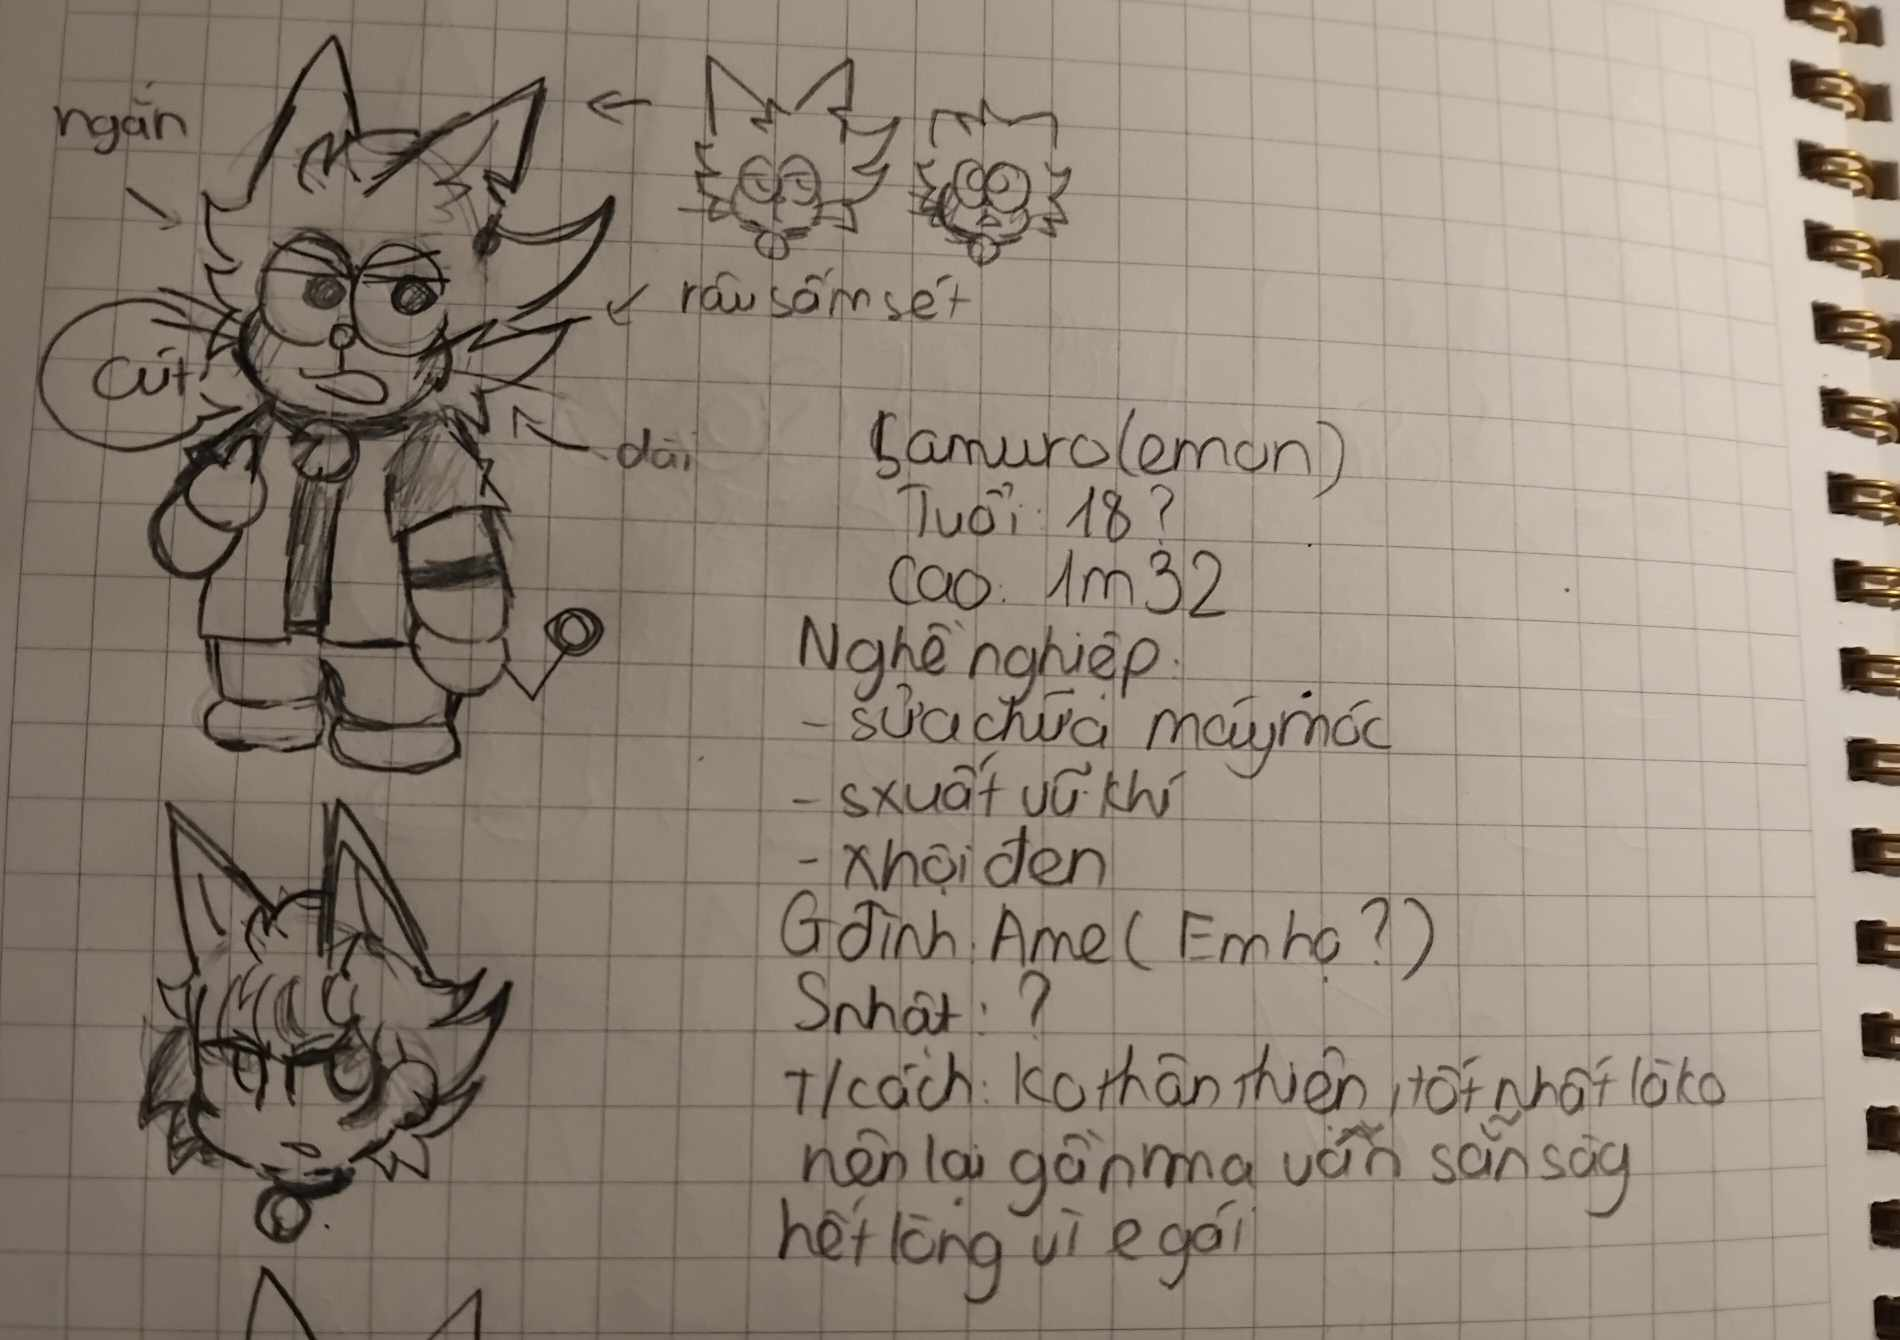 ngắn
râu sấm sét
Cút
dài
Samuro(emon)
Tuổi: 18?
Cao: 1m32
Nghề nghiệp:
- sửa chữa máy móc
- sxuất vũ khí
- xhội đen
Gđình: Ame (Em họ?)
Snhật: ?
T/cách: Ko thân thiện, tốt nhất là ko
nên lại gần nma vẫn sẵn sàg
hết lòng vì e gái